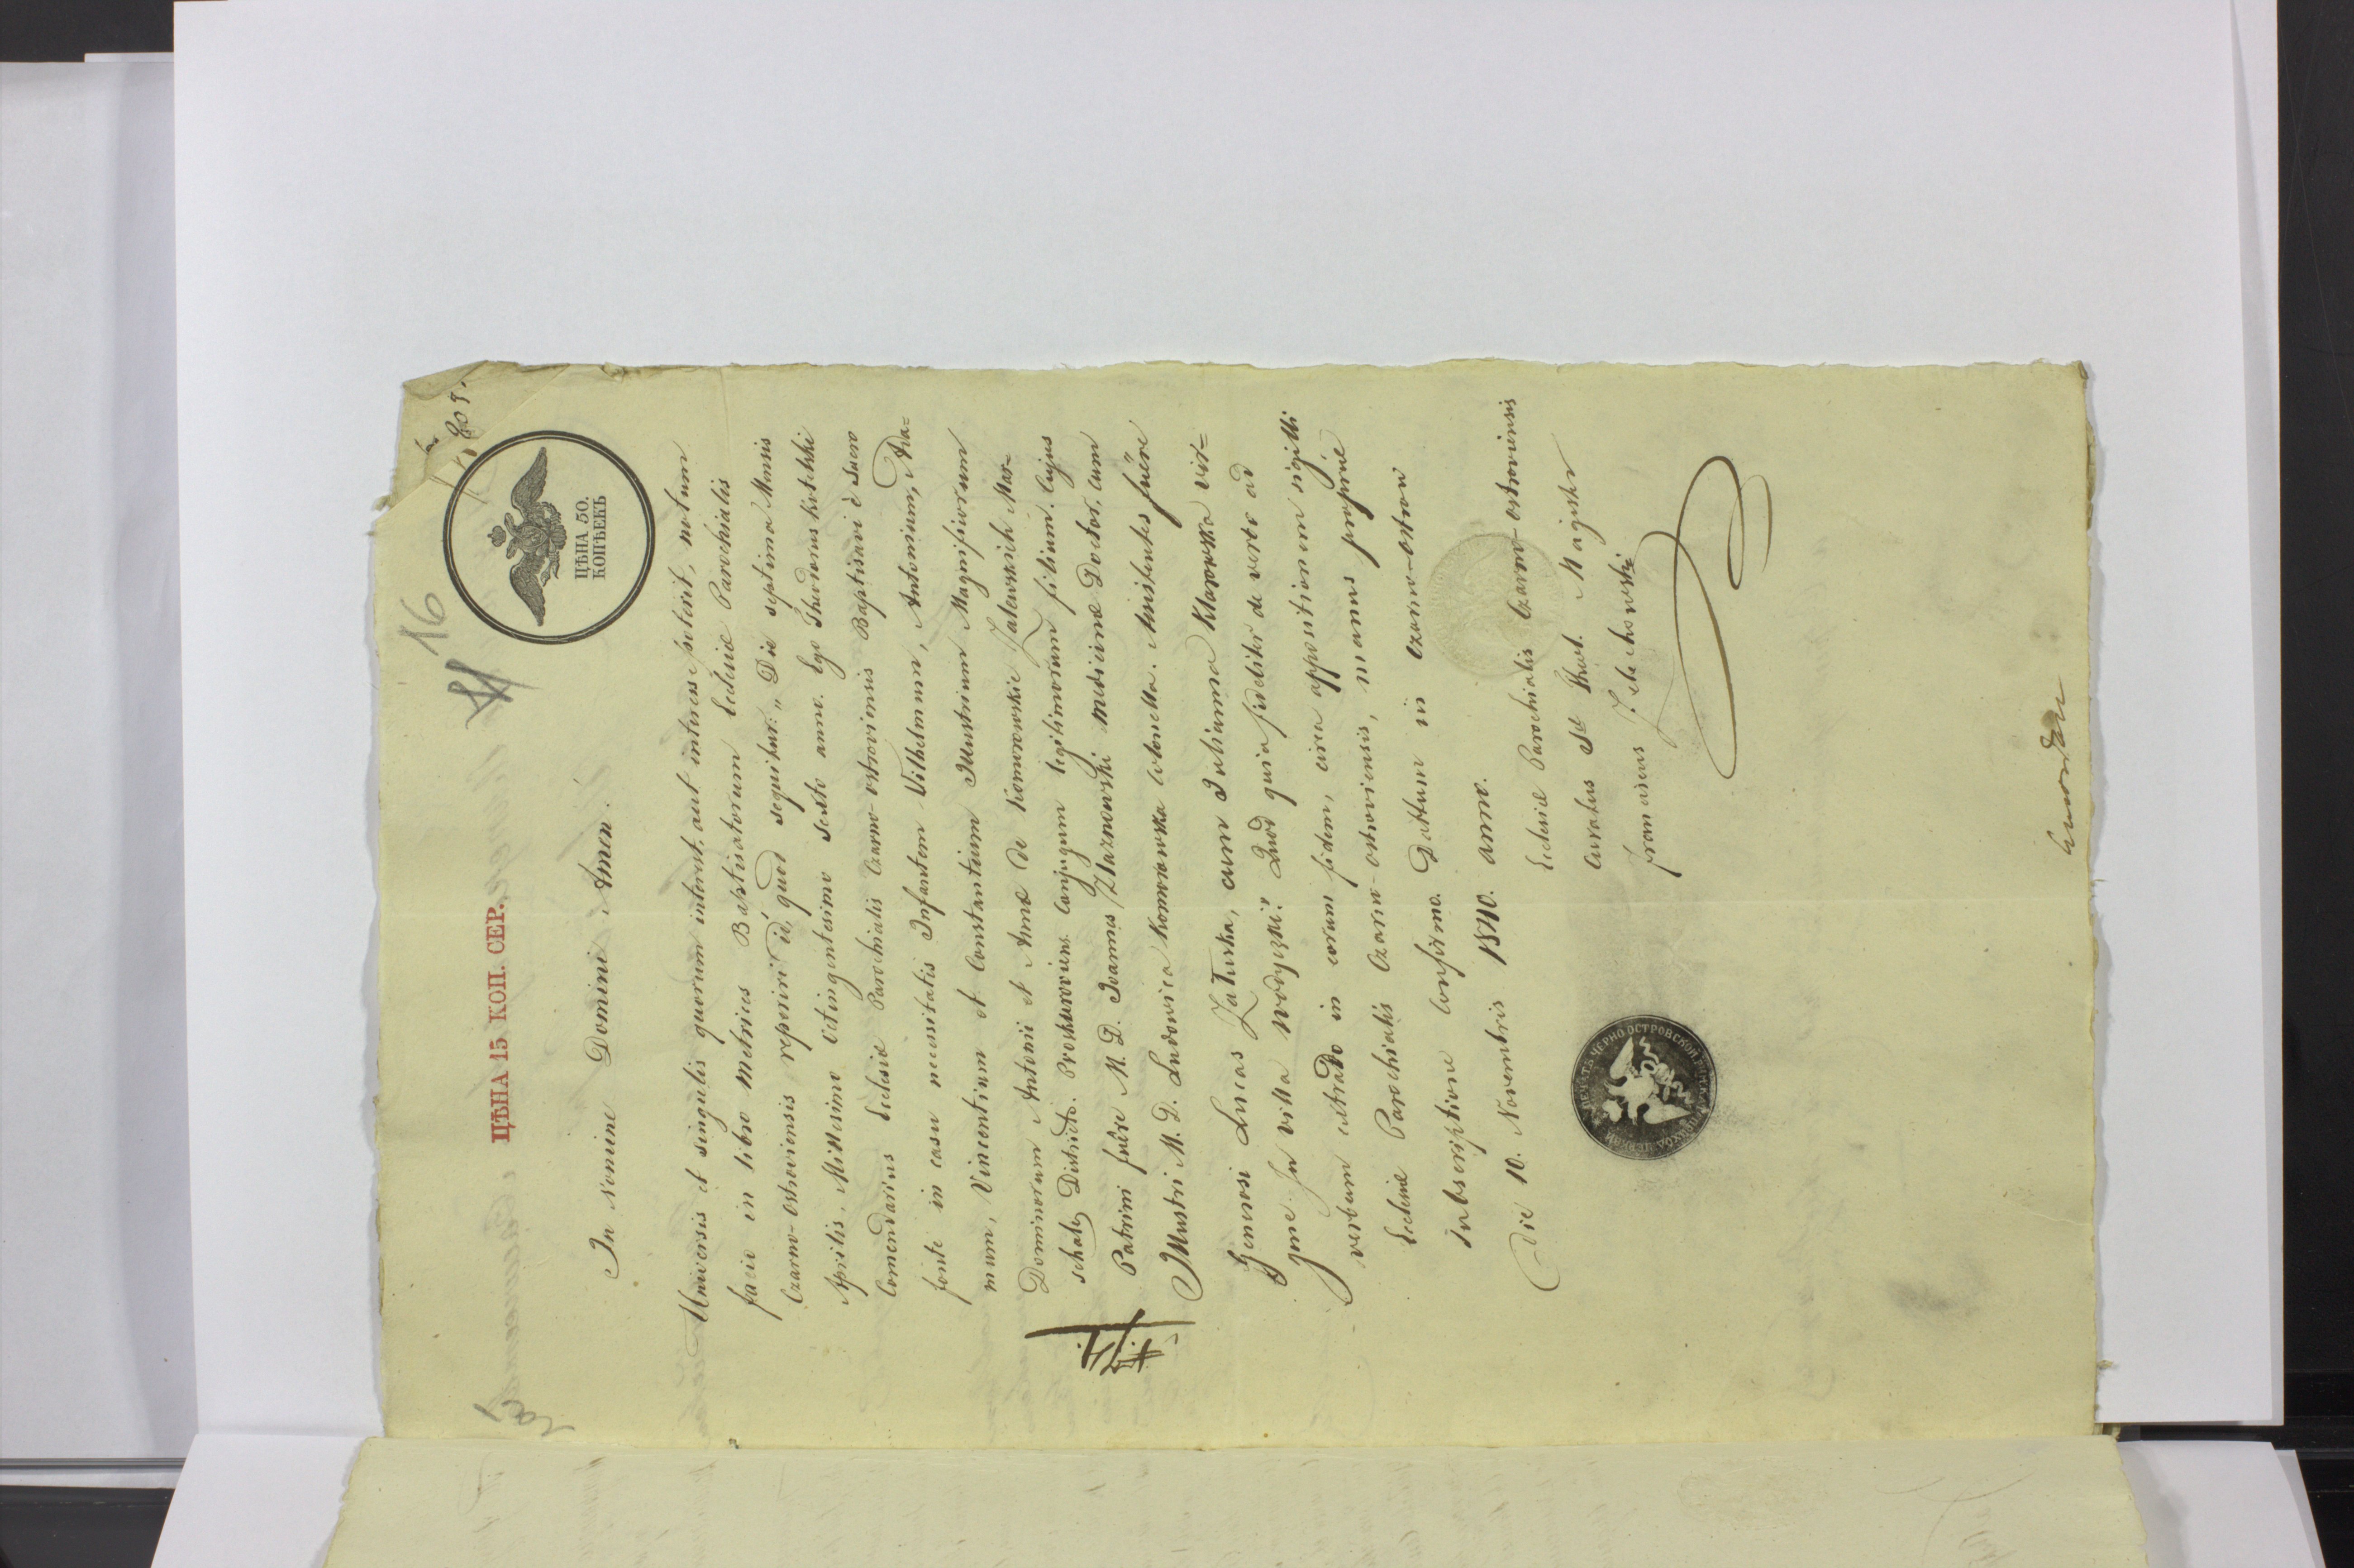 16
ЦѢНА 15 КОП. СЕР.
ЦѢНА 50.
КОПѢЕКЪ
In Nomine Domini Amen.
Universis et singulis quorum interest, aut interesse poterit, notum
facio in libro Metrices Baptisatorum Ecclesiæ Parochialis
Czarno-Ostroviensis reperiri id, quod sequitur: „Die septima Mensis
Aprilis, Millesimo Octingentesimo sexto anno. Ego Theodorus
Comendarius Ecclesiæ Parochialis Czarno-ostroviensis Baptisavi è sacro
fonte in casu necessitatis Infantem Vilhelmum, Antonium,
mum, Vincentium et Constantium Illustrium Magnificorum
Dominorum Antonii et Annæ de Komorowskie Zalewskich Mar-
schals Districts. Proskuroviens. Conjugum legitimorum filium. Cujus
Patrini fuêre M. D. Joannes medicinæ Doctor, cum
Illustri M. D. Ludowica Komorowska Assistentes fuêre
Generosi Lucas Załuska, cum Julianna Kłosowska vir=
gine In villa Quod quia fideliter de verbo ad
verbum extrado in eorum fidem, circa appositionem sigilli
Ecclesiæ Parochialis Czarno-ostroviensis, manus propriè
subscriptione confirmo. Dattum in Czarno-ostrow
Die 10. Novembris 1840. anno.
Ecclesiæ Parochialis Czarno-ostroviensis
Curatus St Theol. Magister
Franciscus